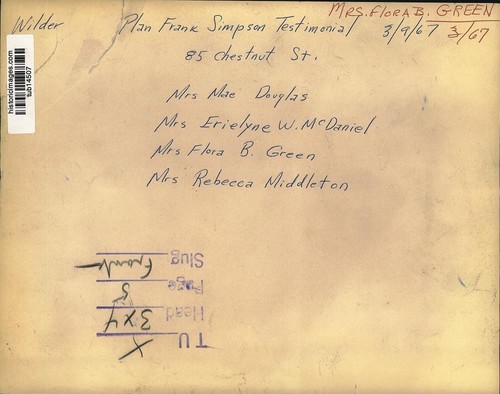 MRS. FLORA B. GREEN
Wilder Plan Frank Simpson Testimonial 3/9/67 3/67
85 chestnut St.
Mrs Mae Douglas
Mrs Erielyne W. McDaniel
Mrs Flora B. Green
Mrs Rebecca Middleton
historicimages.com
tub14507
TU X
Head 3x4
Page 5
Slug Front